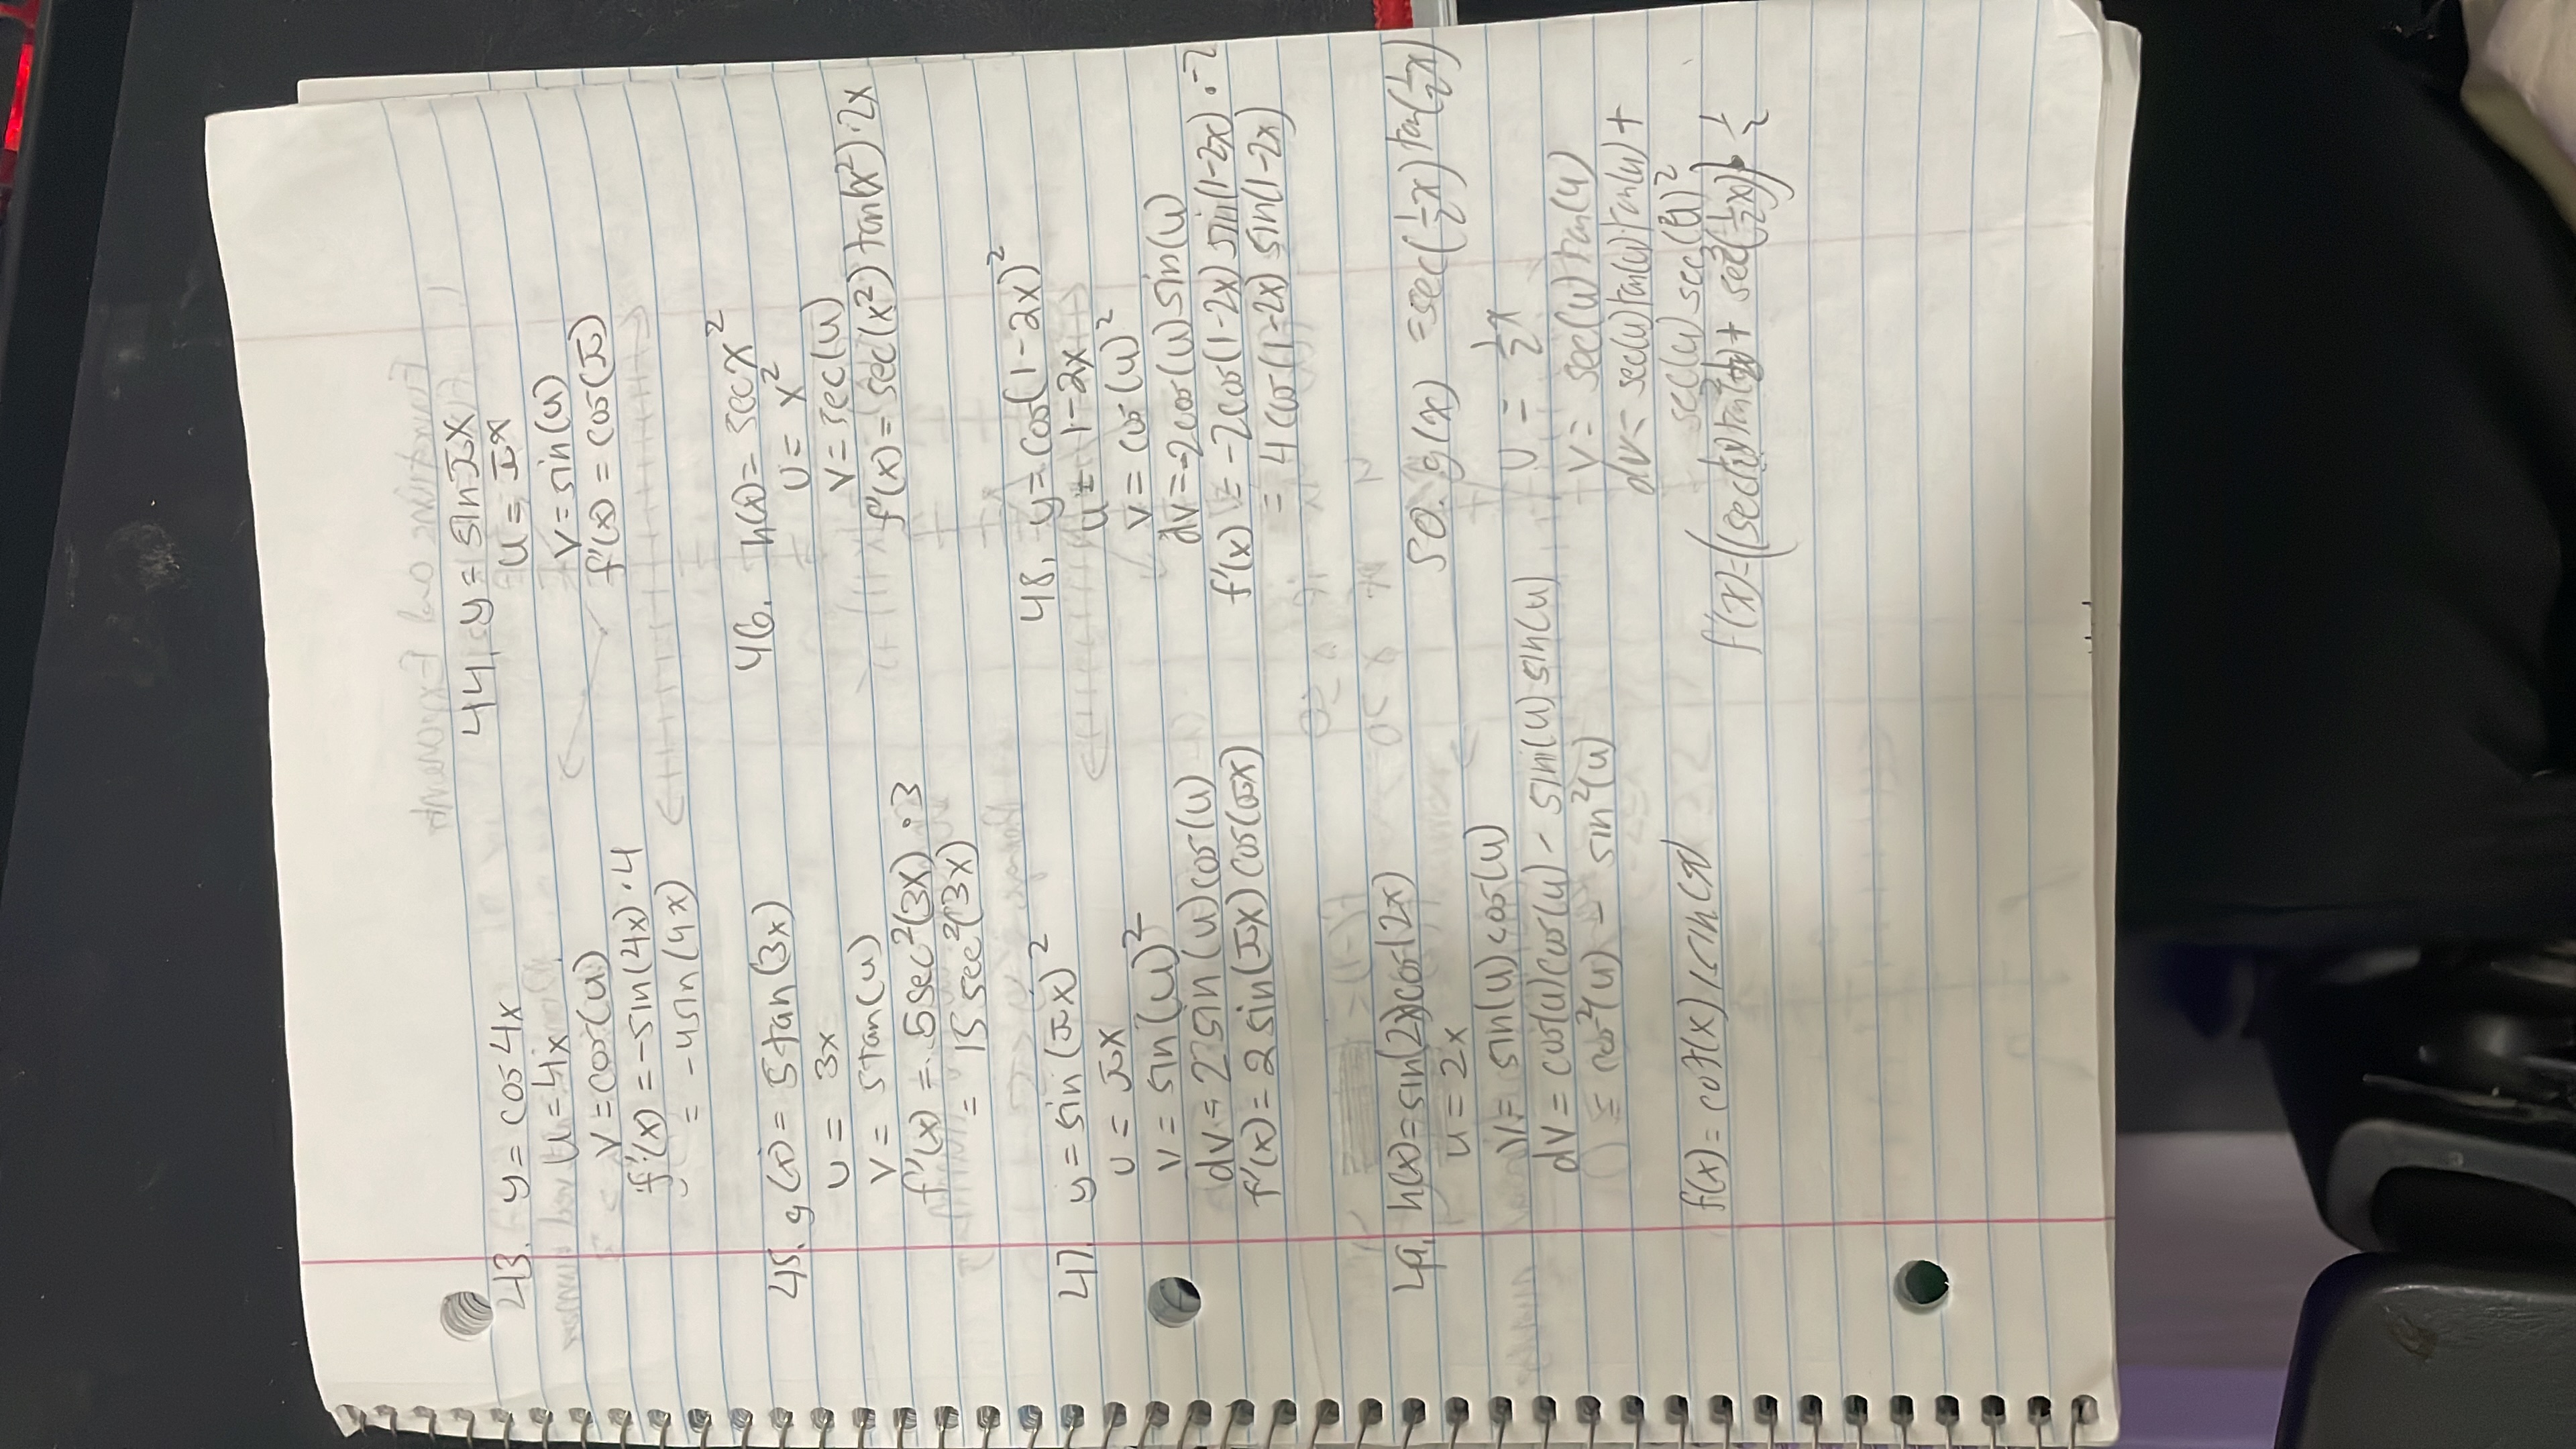 43. y = cos 4x
u = 4x
v = cos(u)
f'(x) = -sin(4x) · 4
= -4sin(4x)
44. y = sin πx
u = πx
v = sin(u)
f'(x) = cos(π)
45. g(x) = 5tan(3x)
u = 3x
v = 5tan(u)
f'(x) = 5sec²(3x) · 3
= 15sec²(3x)
46. h(x) = sec x²
u = x²
v = sec(u)
f'(x) = sec(x²) tan(x²) · 2x
47. y = sin(πx)²
u = πx
v = sin(u)²
dv = 2sin(u)cos(u)
f'(x) = 2sin(πx)cos(πx)
48. y = cos(1-2x)²
u = 1-2x
v = cos(u)²
dv = -2cos(u)sin(u)
f'(x) = -2cos(1-2x) sin(1-2x) · -2
= 4cos(1-2x) sin(1-2x)
49. h(x) = sin(2x)cos(2x)
u = 2x
v = sin(u)cos(u)
dv = cos(u)cos(u) - sin(u)sin(u)
= cos²(u) - sin²(u)
f(x) = cot(x) / sin(x)
50. g(x) = sec(½x) tan(½x)
u = ½x
v = sec(u)tan(u)
dv = sec(u)tan(u)tan(u) +
sec(u) sec(u)²
f'(x) = (sec(½x)tan²(½x) + sec³(½x)) · ½